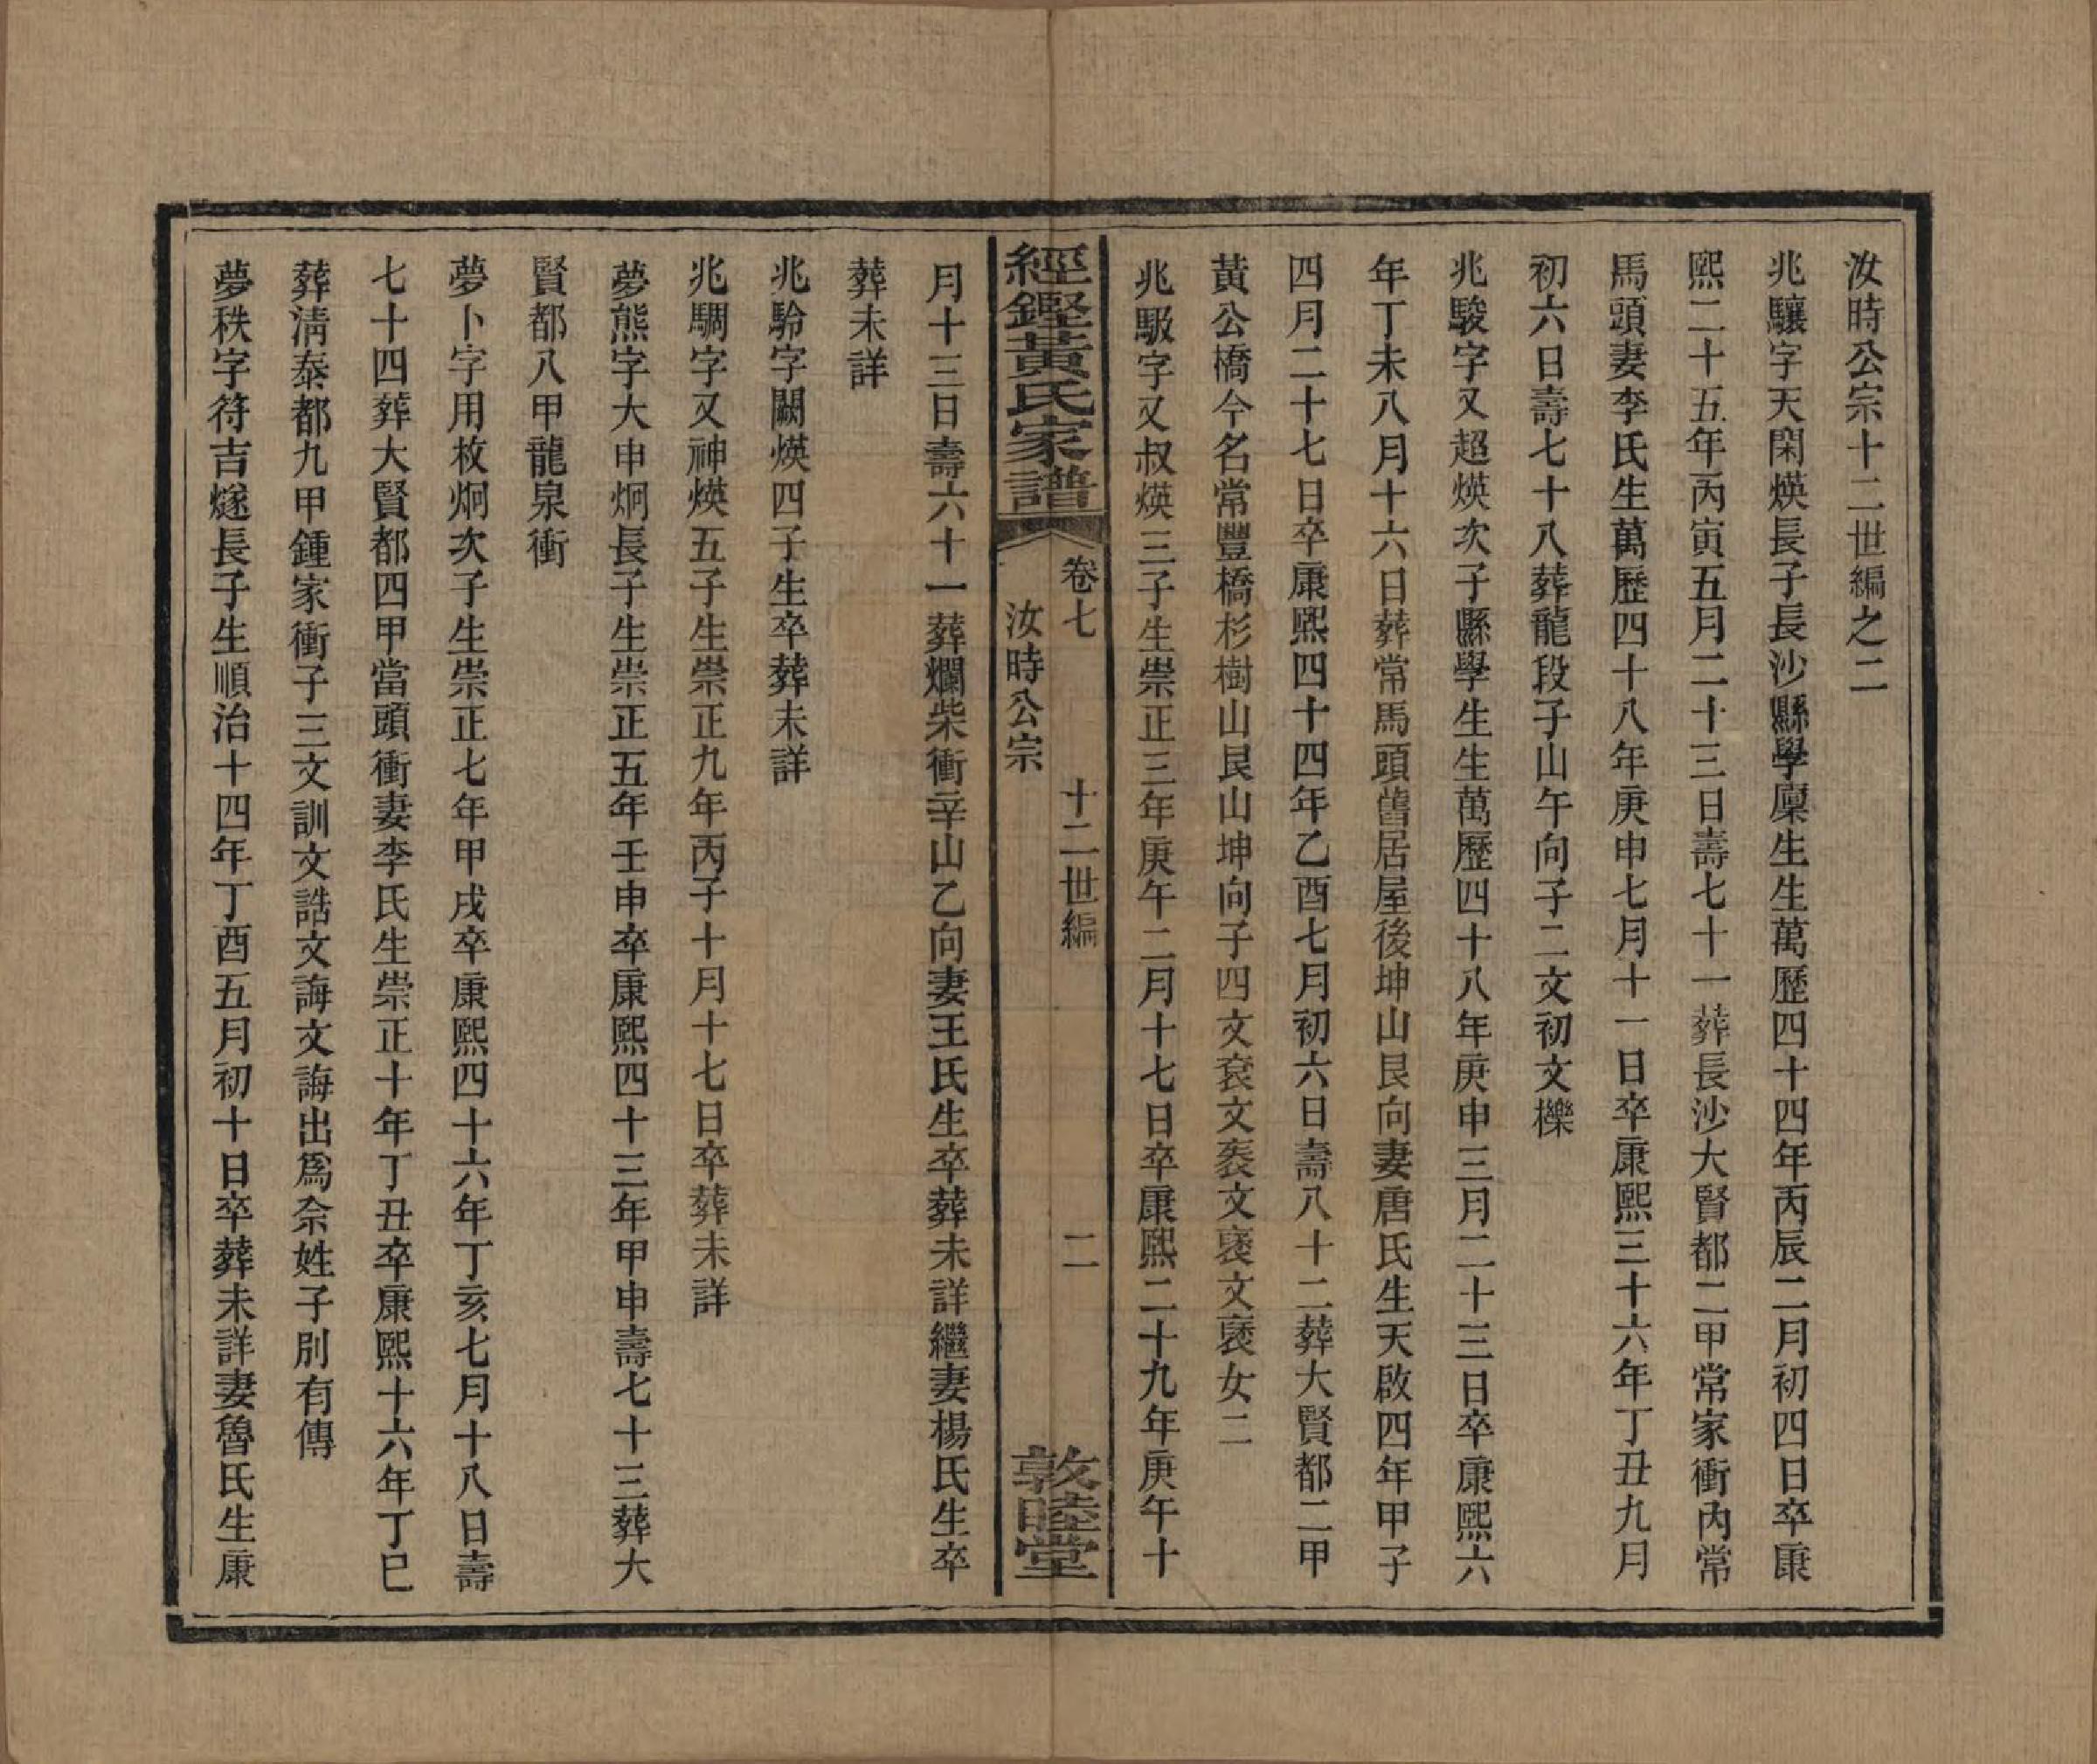 汝時公宗十二世編之二
兆驤字天閑煐長子長沙縣學廩生生萬歷四十四年丙辰二月初四日卒康
熙二十五年丙寅五月二十三日壽七十一葬長沙大賢都二甲常家衝內常
馬頭妻李氏生萬歷四十八年庚申七月十一日卒康熙三十六年丁丑九月
初六日壽七十八葬龍段子山午向子二文初文櫟
兆駿字又超煐次子縣學生生萬歷四十八年庚申三月二十三日卒康熙六
年丁未八月十六日葬常馬頭舊居屋後坤山艮向妻唐氏生天啟四年甲子
四月二十七日卒康熙四十四年乙酉七月初六日壽八十二葬大賢都二甲
黃公橋今名常豐橋杉樹山艮山坤向子四文袞文袠文褒文裦女二
兆馺字又叔煐三子生崇正三年庚午二月十七日卒康熙二十九年庚午十
經鏗黃氏家譜
卷七
汝時公宗
十二世編
二
敦睦堂
月十三日壽六十一葬爛柴衝辛山乙向妻王氏生卒葬未詳繼妻楊氏生卒
葬未詳
兆騇字闕煐四子生卒葬未詳
兆騆字又神煐五子生崇正九年丙子十月十七日卒葬未詳
夢熊字大申炯長子生崇正五年壬申卒康熙四十三年甲申壽七十三葬大
賢都八甲龍泉衝
夢卜字用枚炯次子生崇正七年甲戌卒康熙四十六年丁亥七月十八日壽
七十四葬大賢都四甲當頭衝妻李氏生崇正十年丁丑卒康熙十六年丁巳
葬淸泰都九甲鍾家衝子三文訓文誥文誨文誨出爲佘姓子別有傳
夢秩字符吉燧長子生順治十四年丁酉五月初十日卒葬未詳妻魯氏生康